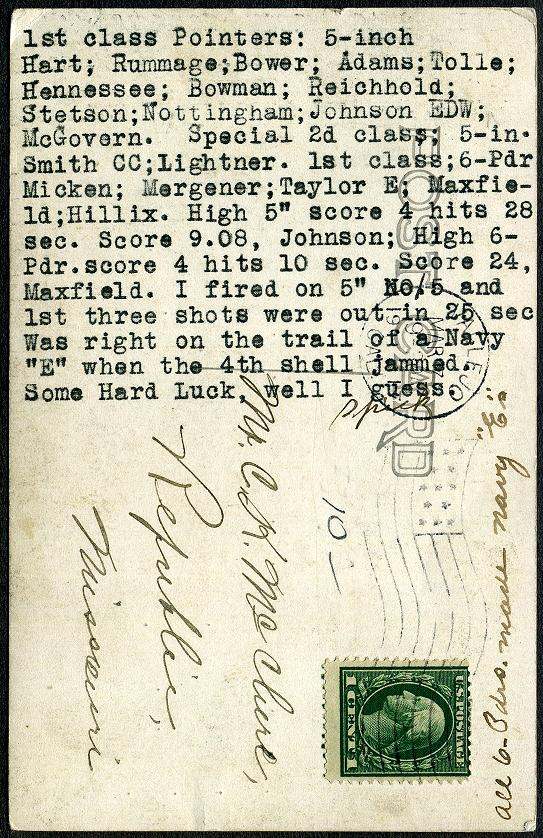 1st class Pointers: 5-inch
Hart; Rummage;Bower; Adams;Tolle;
Hennessee; Bowman; Reichhold;
Stetson;Nottingham;Johnson EDW;
McGovern. Special 2d class; 5-in.
Smith CC;Lightner. 1st class;6-Pdr
Micken; Mergener;Taylor E; Maxfie-
ld;Hillix. High 5" score 4 hits 28
sec. Score 9.08, Johnson; High 6-
Pdr.score 4 hits 10 sec. Score 24,
Maxfield. I fired on 5" NO.5 and
1st three shots were out in 25 sec
Was right on the trail of a Navy
"E" when the 4th shell jammed.
Some Hard Luck, well I guess.
POST CARD
VALLEJO
MAR
Mr. C. K. McClure,
Republic,
Missouri
10
all 6-Pdrs. made navy "E"
U.S. POSTAGE
1 CENT 1